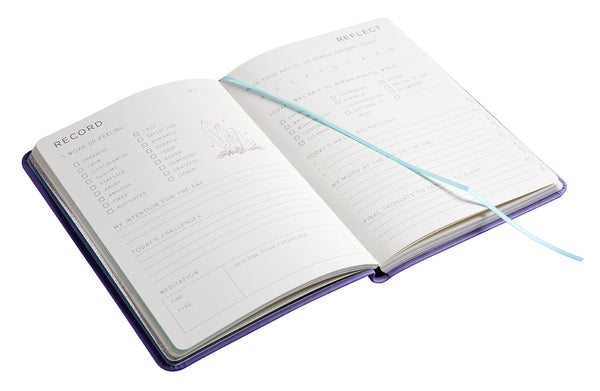 RECORD
I WOKE UP FEELING
CHEERFUL
CALM
LIGHTHEARTED
GLOOMY
STRESSED
ANGRY
ANXIOUS
TIRED
MOTIVATED
LAZY
REFLECTIVE
ROMANTIC
HOPEFUL
TENSE
BORED
CONFIDENT
GRATEFUL
OTHER
MY INTENTION FOR THE DAY
TODAY'S CHALLENGES
MEDITATION
TIME
TYPE
DESCRIBE YOUR EXPERIENCE
REFLECT
YOUR ABILITY TO REMAIN PRESENT TODAY
TODAY I WAS ABLE TO REMAIN MINDFUL WHILE
TODAY'S MAIN DISTRACTIONS
MY MOOD AT THE END OF THE DAY
FINAL THOUGHTS TO SLEEP